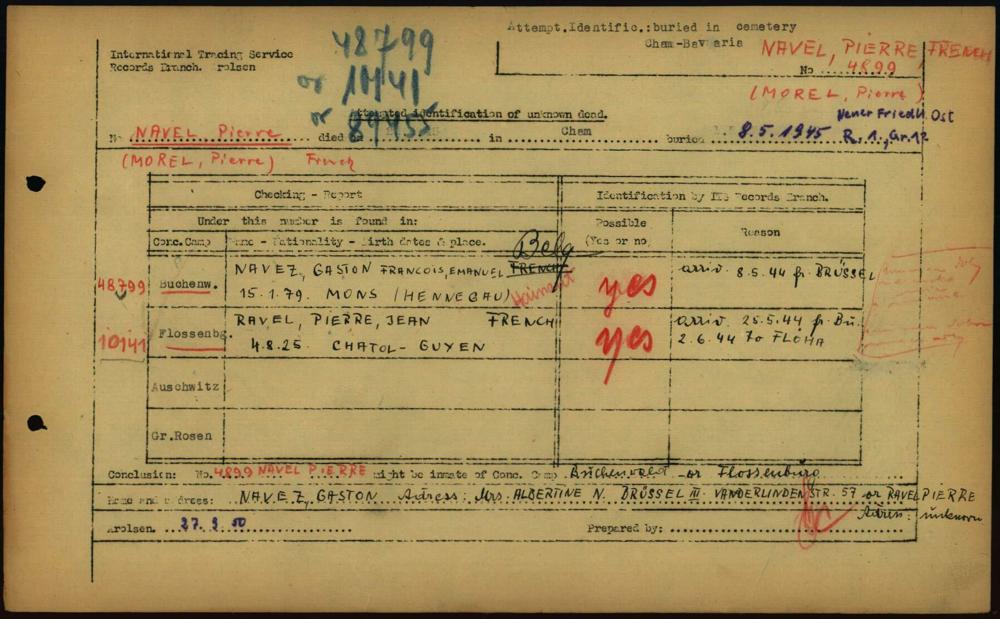 Attempt.Identific.:buried in cemetery
Cham-Bavaria
NAVEL, PIERRE, FRENCH
No ..... 4899
(MOREL, Pierre)
International Tracing Service
Records Branch. Arolsen
48799
or 10141
or 89455
Attempted identification of unknown dead.
Neuer Friedh. Ost
No NAVEL Pierre died on in Cham buried 8.5.1945 R.1., Gr.12
(MOREL, Pierre) French
Checking - Report
Identification by ITS Records Branch.
Under this number is found in:
Possible
(Yes or no)
Reason
Conc.Camp
Name - Nationality - Birth dates & place.
Belg
48799 Buchenw. NAVEZ, GASTON FRANCOIS, EMANUEL FRENCH yes arriv. 8.5.44 fr. BRÜSSEL
15.1.79. MONS (HENNEGAU) Hainaut
10141 Flossenbg. RAVEL, PIERRE, JEAN FRENCH yes arriv. 25.5.44 fr. Bu.
4.8.25. CHATOL-GUYEN 2.6.44 to FLÖHA
Auschwitz
Gr.Rosen
Conclusion: No. 4899 NAVEL PIERRE might be inmate of Conc. Camp Buchenwald or Flossenbürg
Name and adress: NAVEZ, GASTON Adress: Mrs. ALBERTINE N. BRÜSSEL III. VANDERLINDENSTR. 57 or RAVEL PIERRE
Adress: unknown
Arolsen. 27.9.50
Prepared by: